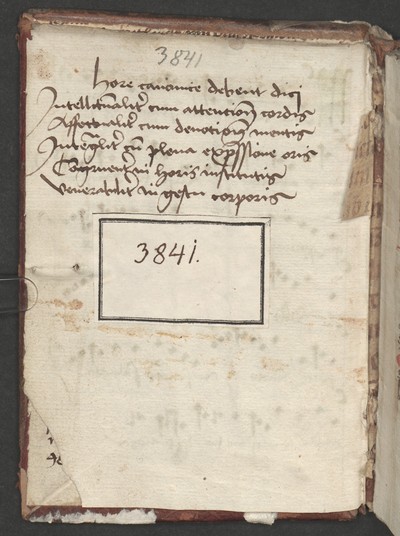 3841
Hore canonice debent dici
Intellectualiter cum attencione cordis
Affectualiter cum devotione mentis
Integraliter cum plena expressione oris
Congruenter in horis institutis
Venerabiliter in gestu corporis
3841.